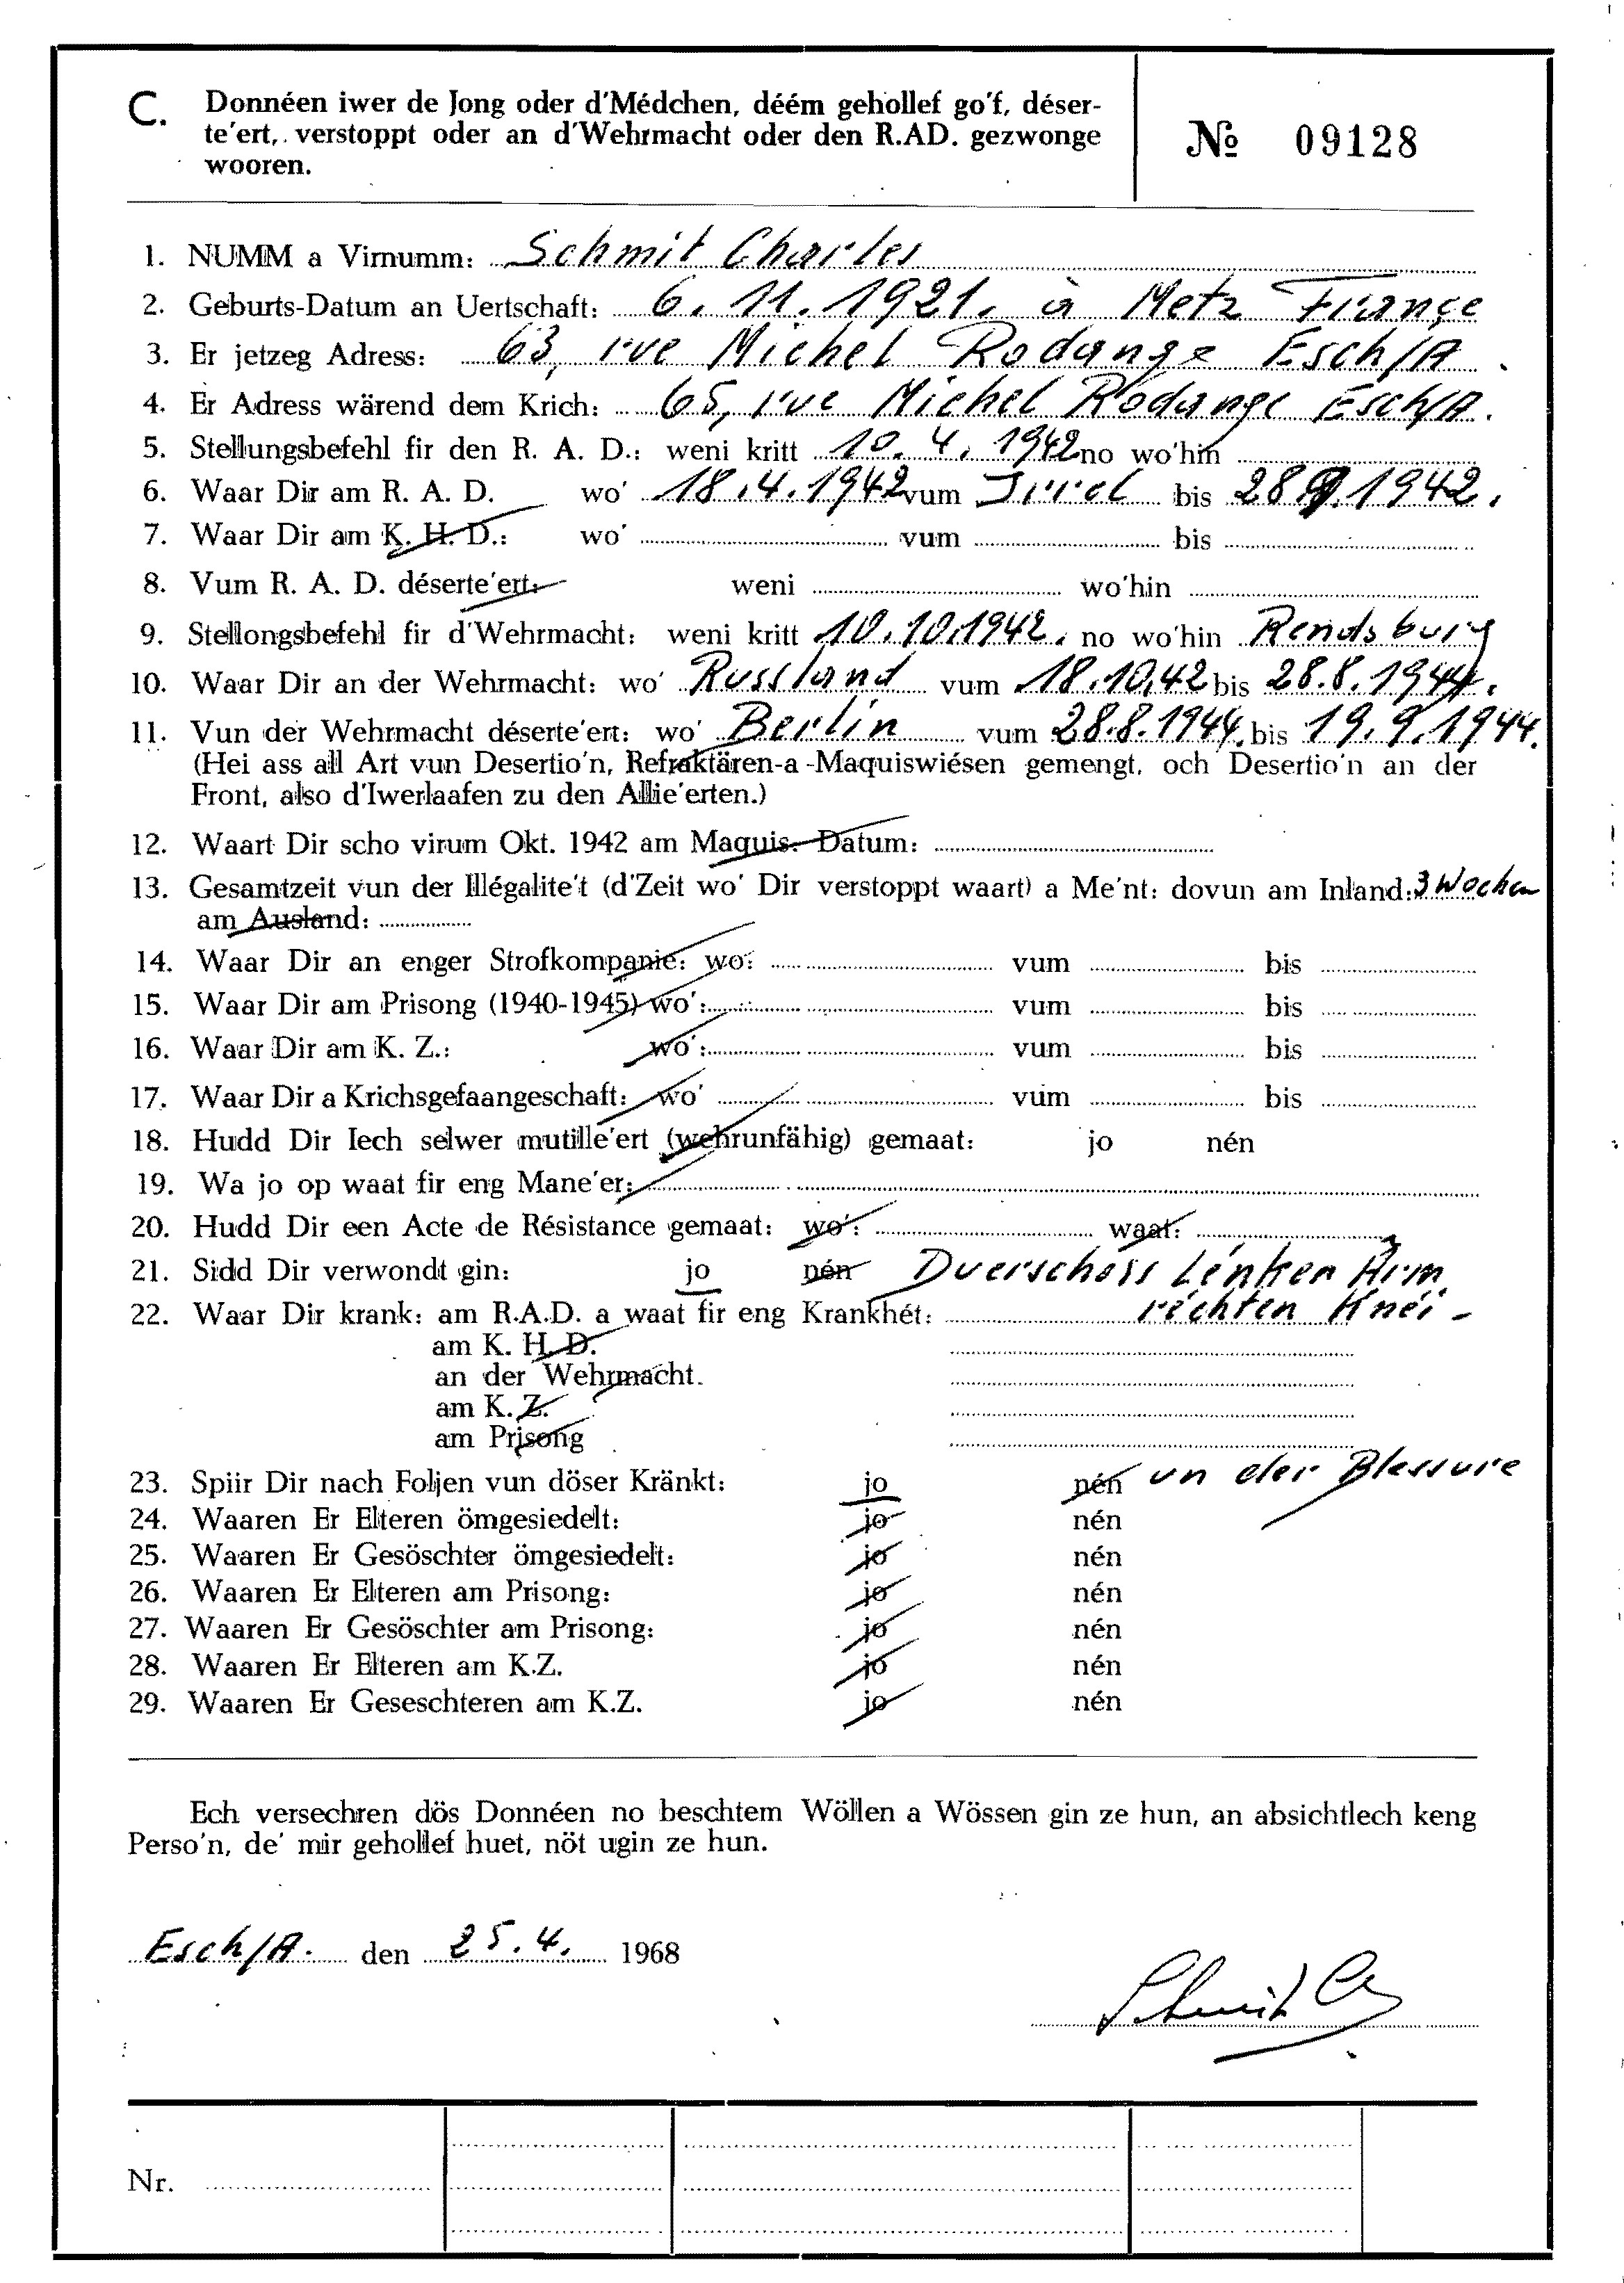 C. Donnéen iwer de Jong oder d'Médchen, déém gehollef go'f, déser-
te'ert, verstoppt oder an d'Wehrmacht oder den R.AD. gezwonge
wooren.
№ 09128
1. NUMM a Virnumm: Schmit Charles
2. Geburts-Datum an Uertschaft: 6. 11. 1921. à Metz France
3. Er jetzeg Adress: 63, rue Michel Rodange Esch/A.
4. Er Adress wärend dem Krich: 65, rue Michel Rodange Esch/A.
5. Stellungsbefehl fir den R. A. D.: weni kritt 10. 4. 1942 no wo'hin
6. Waar Dir am R. A. D. wo' 18.4.1942 vum Irrel bis 28.9.1942.
7. Waar Dir am K. H. D.: wo' vum bis
8. Vum R. A. D. déserte'ert: weni wo'hin
9. Stellongsbefehl fir d'Wehrmacht: weni kritt 10.10.1942. no wo'hin Rendsburg
10. Waar Dir an der Wehrmacht: wo' Russland vum 18.10.42 bis 28.8.1944.
11. Vun der Wehrmacht déserte'ert: wo' Berlin vum 28.8.1944. bis 19.9.1944.
(Hei ass all Art vun Desertio'n, Refraktären-a-Maquiswiésen gemengt, och Desertio'n an der
Front, also d'Iwerlaafen zu den Allie'erten.)
12. Waart Dir scho virum Okt. 1942 am Maquis. Datum:
13. Gesamtzeit vun der Illégalite't (d'Zeit wo' Dir verstoppt waart) a Me'nt: dovun am Inland: 3 Wochen
am Ausland:
14. Waar Dir an enger Strofkompanie: wo: vum bis
15. Waar Dir am Prisong (1940-1945) wo': vum bis
16. Waar Dir am K. Z.: wo': vum bis
17. Waar Dir a Krichsgefaangeschaft: wo' vum bis
18. Hudd Dir Iech selwer mutille'ert (wehrunfähig) gemaat: jo nén
19. Wa jo op waat fir eng Mane'er:
20. Hudd Dir een Acte de Résistance gemaat: wo': waat:
21. Sidd Dir verwondt gin: jo nén Duerschoss Lénken Arm
22. Waar Dir krank: am R.A.D. a waat fir eng Krankhét: rechten Knéi -
am K. H. D.
an der Wehrmacht.
am K. Z.
am Prisong
23. Spiir Dir nach Foljen vun döser Kränkt: jo nén vn der Blessure
24. Waaren Er Elteren ömgesiedelt: jo nén
25. Waaren Er Gesöschter ömgesiedelt: jo nén
26. Waaren Er Elteren am Prisong: jo nén
27. Waaren Er Gesöschter am Prisong: jo nén
28. Waaren Er Elteren am K.Z. jo nén
29. Waaren Er Geseschteren am K.Z. jo nén
Ech versechren dös Donnéen no beschtem Wöllen a Wössen gin ze hun, an absichtlech keng
Perso'n, de' mir gehollef huet, nöt ugin ze hun.
Esch/A. den 25. 4. 1968
Schmit Ch
Nr.